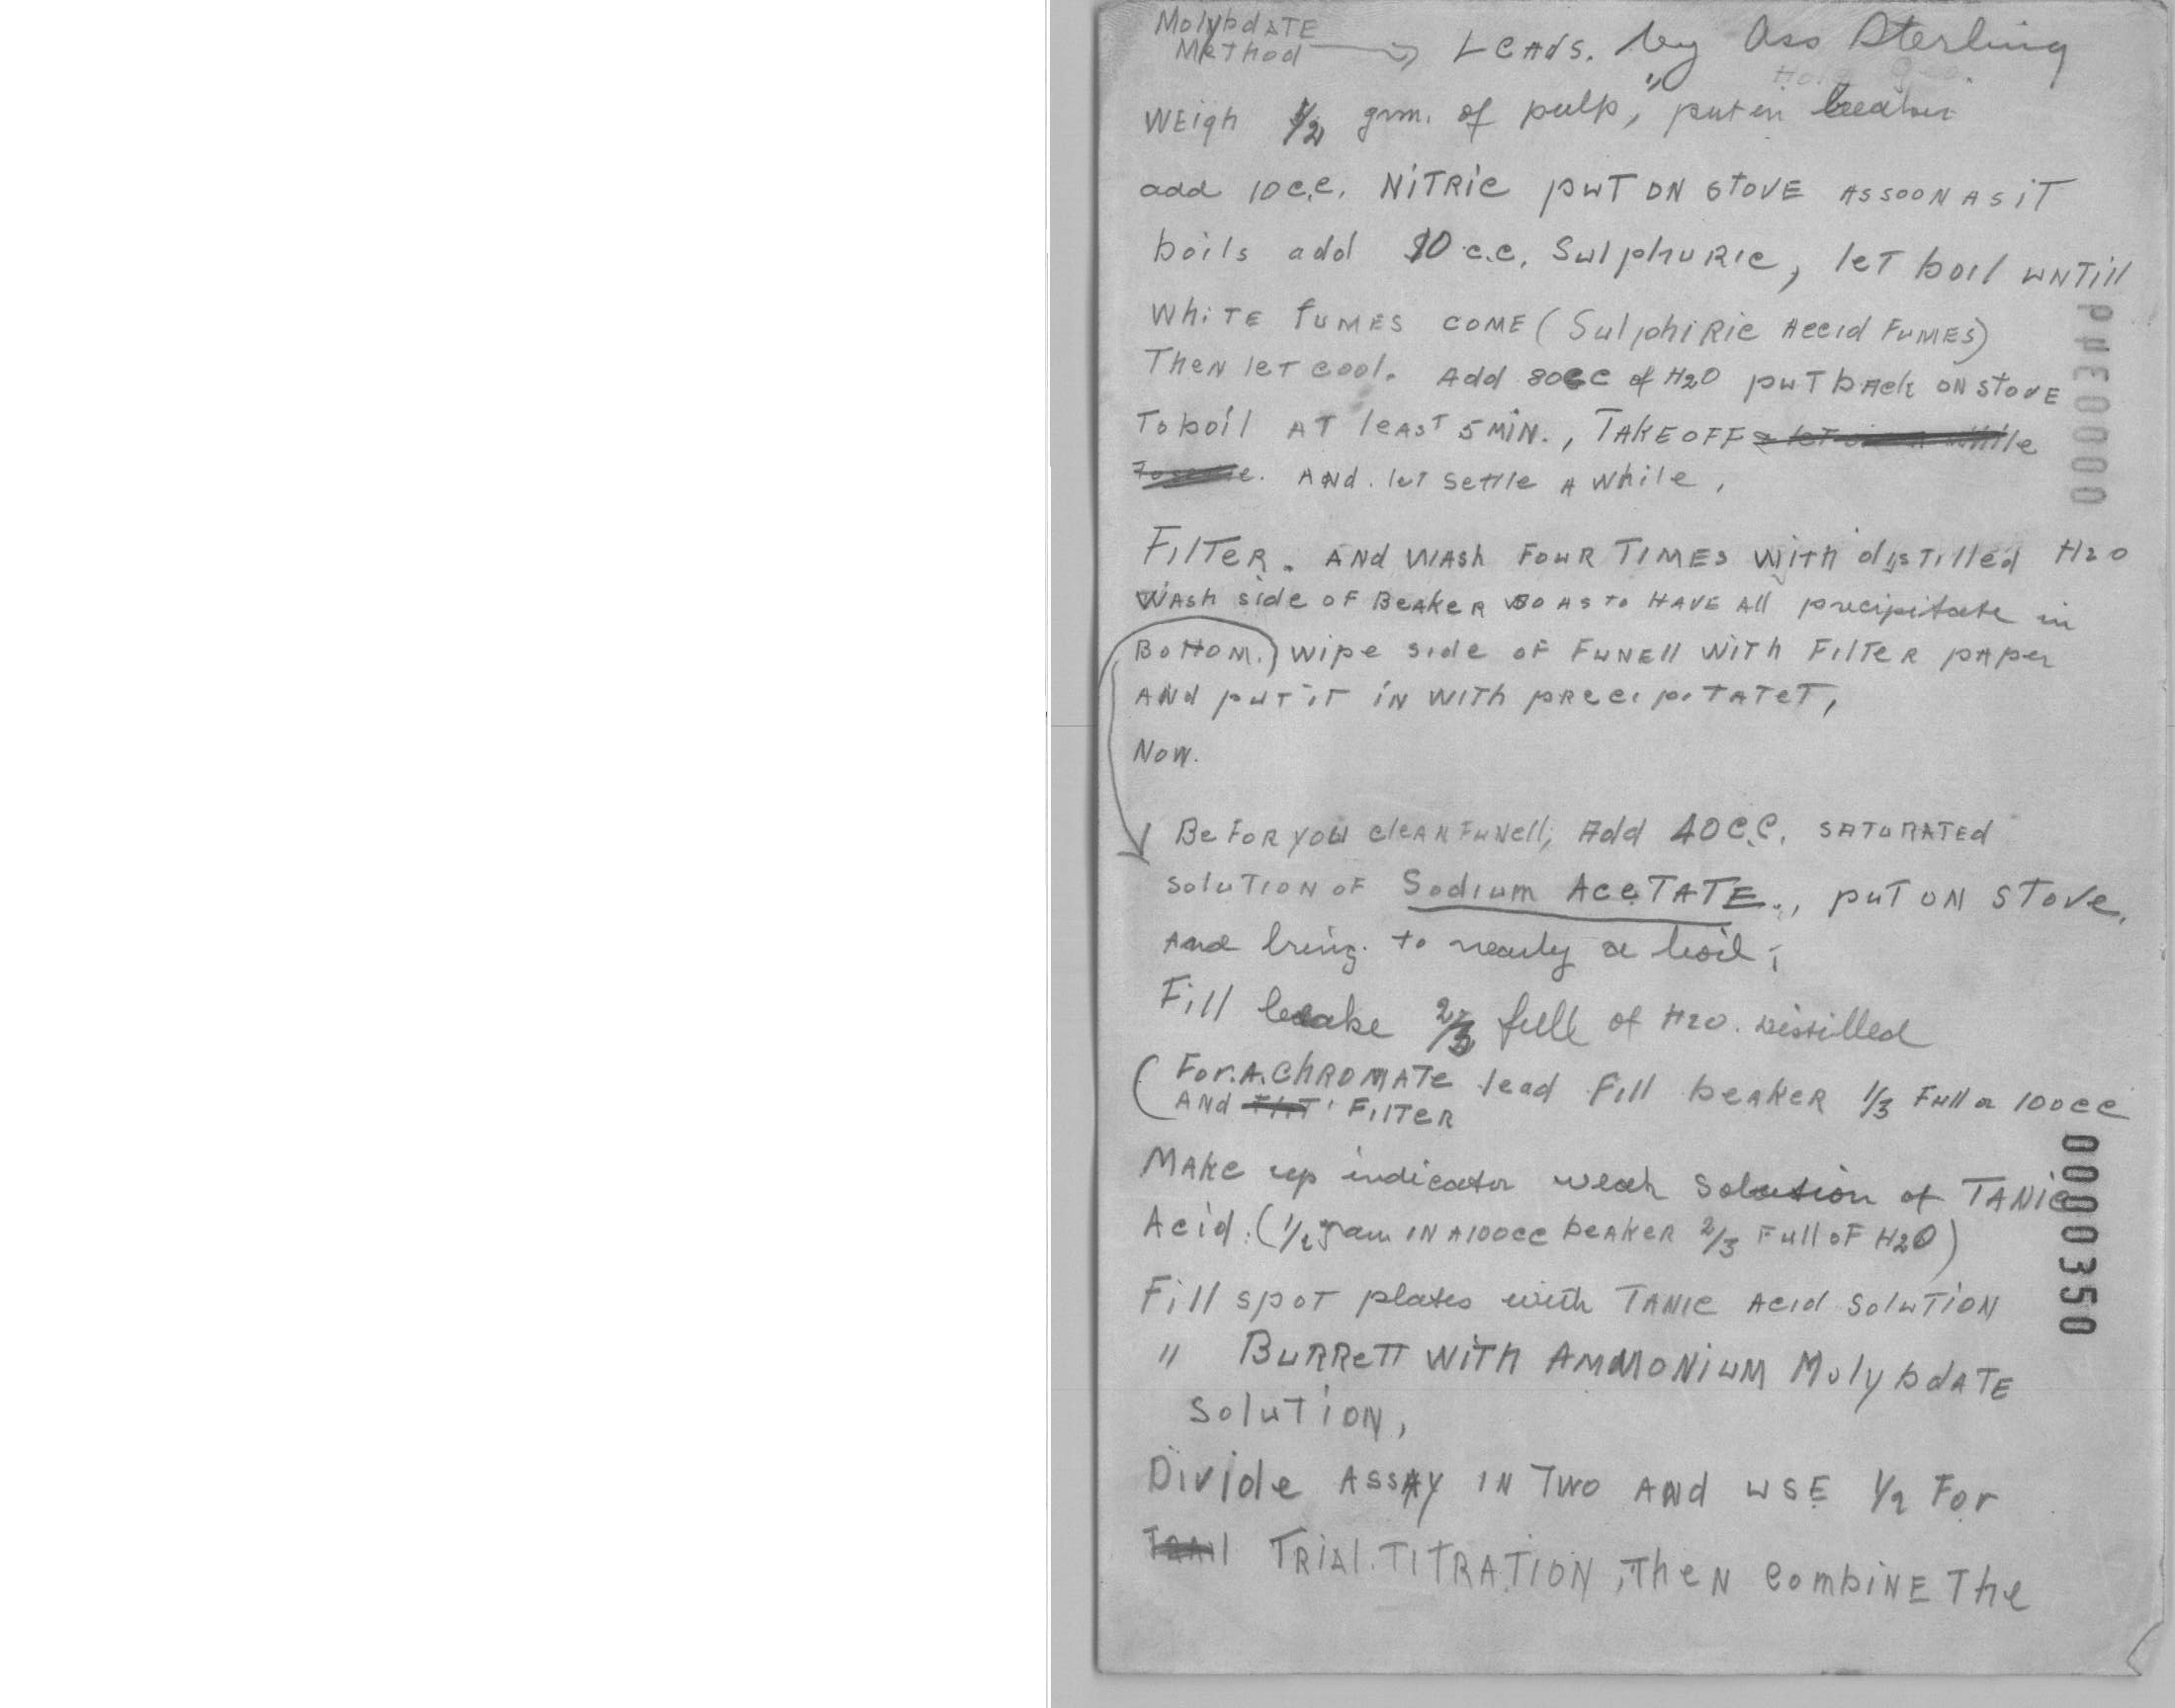 MolybdATE
METhod → LEAds. by Ass Sterling
WEigh 1/2 grm. of pulp, put in beaker
add 10 c.c. NiTRic puT ON STOVE AS SOON AS iT
boils add 10 c.c. SulphuRic, leT boil uNTill
WhiTE fUMES COME (SulphiRic Accid FuMES)
TheN leT cool. Add 80CC of H2O puT bAck ON STOVE
To boil AT leAST 5 MiN., TAKE OFF
ANd. let Settle A while,
FilTeR. ANd WASh FOuR TIMES WiTh disTilled H2O
WAsh side oF BeAkeR SO AS To HAVE All precipitate in
BoTTom.) wipe side oF FuNEll WiTh FilTeR pApeR
ANd puT iT iN wiTh pRecipiTATeT,
Now.
BeFoR you cleAN FuNell, Add 40 C.C. SATURATEd
SoluTiON oF Sodium AceTATE., puT ON STove,
And bring to nearly a boil;
Fill beake 2/3 full of H2O. Distilled
(For. A. ChROMATe lead Fill beAKeR 1/3 Full or 100cc
ANd FilTeR
MAKe up indicator weak Solution of TANic
Acid. (1/2 gram iN A 100cc beAKeR 2/3 Full oF H2O)
Fill spoT plates with TANic Acid SoluTioN
" BuRReTT WiTh AMMONiuM MolybdATE
SoluTiON,
Divide ASSAY iN Two ANd uSE 1/2 For
TRiAl. TITRATiON, TheN CombiNE The
0000350